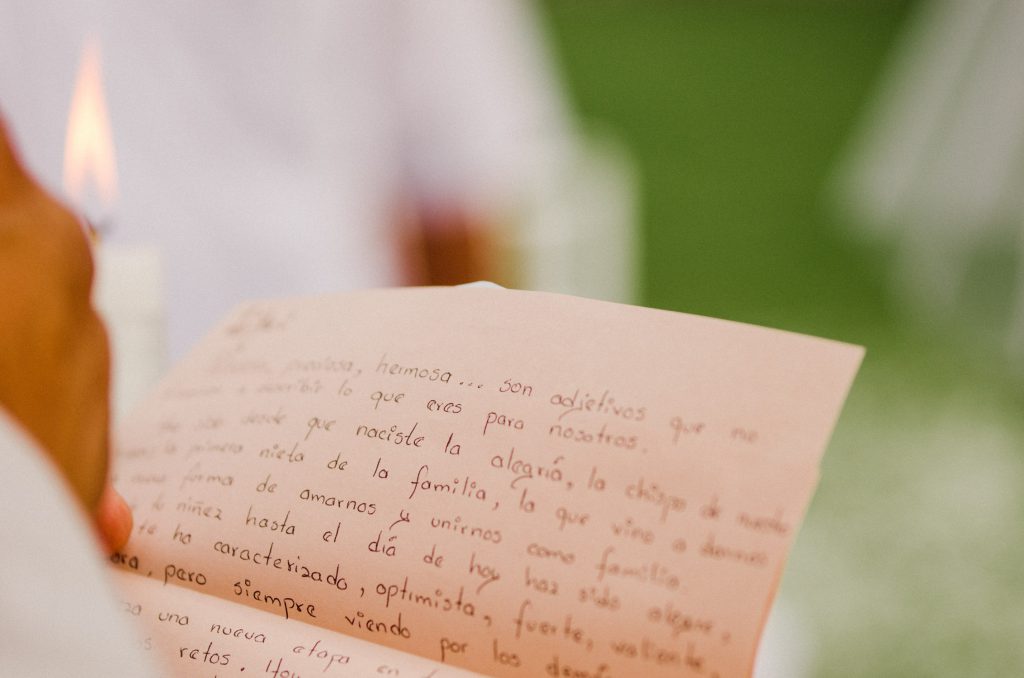 preciosa, hermosa... son adjetivos que no
describir lo que eres para nosotros.
desde que naciste la alegriá, la chispa de nuestra
la primera nieta de la familia, la que vino a darnos
nueva forma de amarnos y unirnos como familia.
tu niñez hasta el diá de hoy haz sido alegre,
te ha caracterizado, optimista, fuerte, valiente,
pero siempre viendo por los demás
una nueva etapa en
retos. Hoy